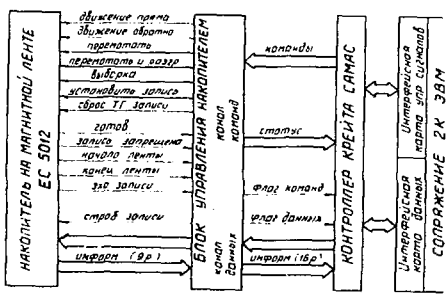 НАКОПИТЕЛЬ НА МАГНИТНОЙ ЛЕНТЕ
ЕС 5012
движение прямо
движение обратно
перемотать
перемотать и разгр
выборка
установить запись
сброс ТГ записи
готов
запись запрещена
начало ленты
конец ленты
эхо записи
строб записи
информ (9р)
БЛОК УПРАВЛЕНИЯ НАКОПИТЕЛЕМ
канал
команд
канал
данных
команды
статус
флаг команд
флаг данных
информ (16р)
КОНТРОЛЛЕР КРЕЙТА САМАС
Интерфейсная
карта упр сигналов
Интерфейсная
карта данных
СОПРЯЖЕНИЕ 2К ЭВМ